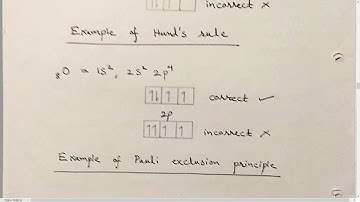 incorrect ×
Example of Hund's rule
₈O = 1S², 2S² 2p⁴
↑↓ ↑ ↑ correct ✓
2p
↑↑ ↑ ↑ incorrect ×
Example of Pauli exclusion principle